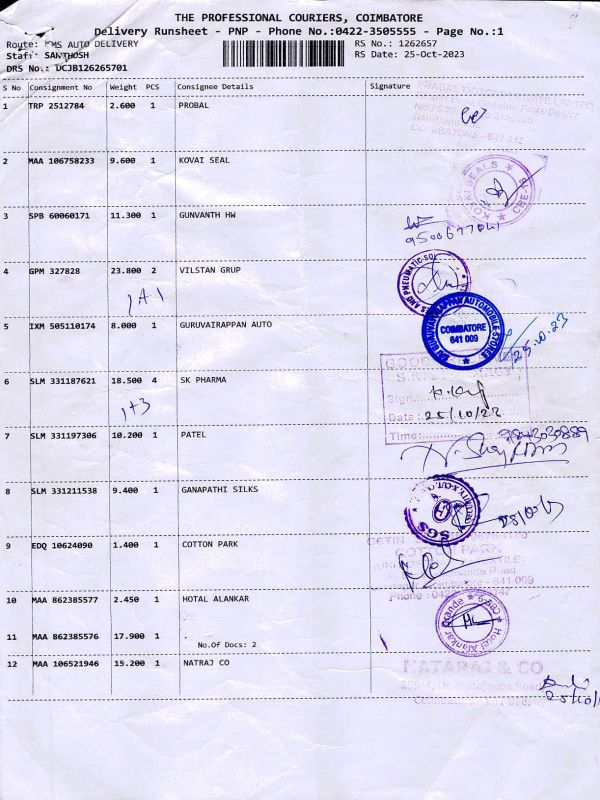 THE PROFESSIONAL COURIERS, COIMBATORE
Delivery Runsheet - PNP - Phone No.:0422-3505555 - Page No.:1
Route: EMS AUTO DELIVERY RS No.: 1262657
Staff: SANTHOSH RS Date: 25-Oct-2023
DRS No.: DCJB126265701
S No Consignment No Weight PCS Consignee Details Signature
1 TRP 2512784 2.600 1 PROBAL
COIMBATORE - 641 012
2 MAA 106758233 9.600 1 KOVAI SEAL
KOVAI SEALS CBE-18
3 SPB 60060171 11.300 1 GUNVANTH HW
4 GPM 327828 23.800 2 VILSTAN GRUP
1+1
5 IXM 505110174 8.000 1 GURUVAIRAPPAN AUTO
SRI GURUVAIRAPPAN AUTOMOBILE STORES
COIMBATORE
641 009
25.10.23
6 SLM 331187621 18.500 4 SK PHARMA
1+3
Sign
Date: 25/10/23
Time:
7 SLM 331197306 10.200 1 PATEL
9842030889
8 SLM 331211538 9.400 1 GANAPATHI SILKS
SGS
9 EDQ 10624090 1.400 1 COTTON PARK
COTTON PARK
Coimbatore - 641 009
10 MAA 862385577 2.450 1 HOTAL ALANKAR
Hotel Alankar Grande CBE-9
11 MAA 862385576 17.900 1 .
No.Of Docs: 2
12 MAA 106521946 15.200 1 NATRAJ CO
NATARAJ & CO
25/10/